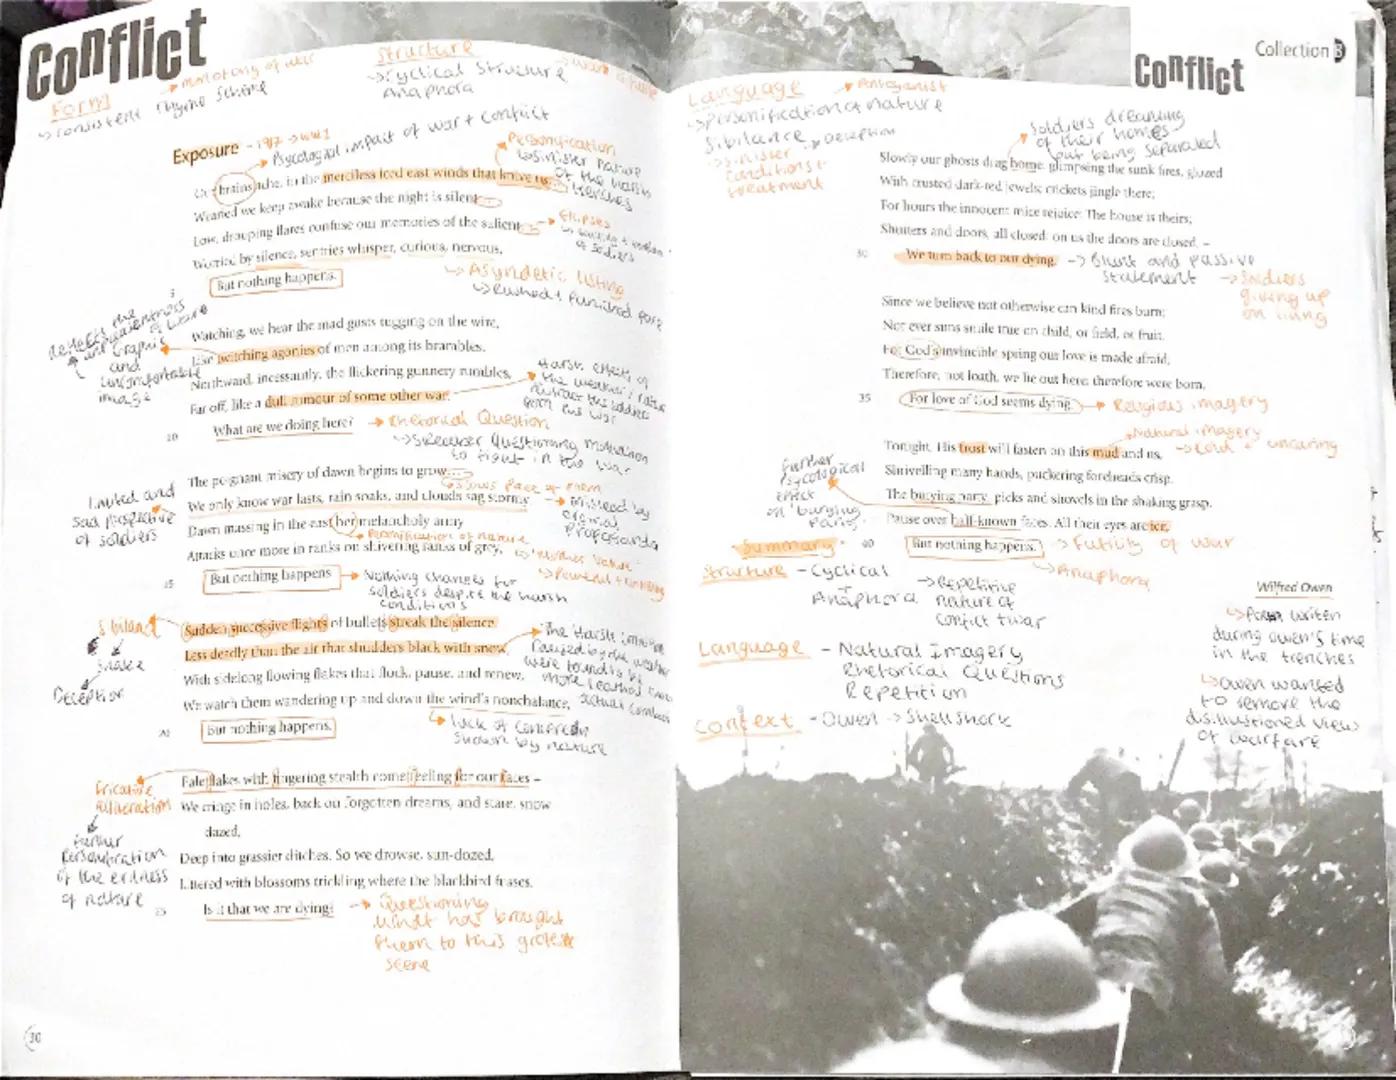 Conflict
Form
→ monotony of war
→ consistent rhyme scheme
Structure
→ cyclical structure
Anaphora
Exposure - 1917 → WW1
→ Psycological impact of war + conflict
Personification
↳ sinister nature
of the harsh
trenches
Our brains ache, in the merciless iced east winds that knive us...
Wearied we keep awake because the night is silent...
Low, drooping flares confuse our memories of the salient...
Worried by silence, sentries whisper, curious, nervous,
But nothing happens.
→ Elipses
of soldiers
↳ Asyndetic listing
↳ Rushed + punished pace
Reflects the
of war
Graphic
and
uncomfortable
image
Watching, we hear the mad gusts tugging on the wire,
Like twitching agonies of men among its brambles.
Northward, incessantly, the flickering gunnery rumbles,
Far off, like a dull rumour of some other war.
10
What are we doing here?
Harsh effects of
the weather
distract the soldiers
from the war
→ Rhetorical Question
↳ Speaker Questioning motivation
to fight in the war
The poignant misery of dawn begins to grow...
↳ slows pace of poem
We only know war lasts, rain soaks, and clouds sag stormy.
Dawn massing in the east her melancholy army
↳ Personification of nature
Attacks once more in ranks on shivering ranks of grey,
15
But nothing happens
Limited and
sad perspective
of soldiers
→ Mislead by
original
propaganda
↳ 'Mother Nature'
→ Nothing changes for
soldiers despite the harsh
conditions
Sudden successive flights of bullets streak the silence.
Less deadly than the air that shudders black with snow,
With sidelong flowing flakes that flock, pause, and renew,
We watch them wandering up and down the wind's nonchalance,
20
But nothing happens.
Sibilance
Snake
Deception
The Harsh
caused by the weather
were found to be
more leathal than
actual combat
↳ lack of concern
shown by nature
Pale flakes with fingering stealth come feeling for our faces –
We cringe in holes, back on forgotten dreams, and stare, snow
dazed,
Deep into grassier ditches. So we drowse, sun-dozed,
Littered with blossoms trickling where the blackbird fusses.
25
Is it that we are dying?
Fricative
alliteration
further
personification
of the
of nature
→ Questioning
what has brought
them to this
scene
30
Conflict
Collection 3
Language
→ Antagonist
→ Personification of nature
Sibilance → Deception
→ sinister
conditions +
treatment
Soldiers dreaming
of their homes
but being separated
Slowly our ghosts drag home: glimpsing the sunk fires, glozed
With crusted dark-red jewels; crickets jingle there;
For hours the innocent mice rejoice: The house is theirs;
Shutters and doors, all closed: on us the doors are closed, –
30
We turn back to our dying.
→ Blunt and passive
statement
→ Soldiers
giving up
on living
Since we believe not otherwise can kind fires burn;
Nor ever suns smile true on child, or field, or fruit.
For God's invincible spring our love is made afraid;
Therefore, not loath, we lie out here; therefore were born,
35
For love of God seems dying.
→ Religious imagery
Natural imagery
→ Cold + uncaring
Tonight, His frost will fasten on this mud and us,
Shrivelling many hands, puckering foreheads crisp.
The burying party, picks and shovels in the shaking grasp,
Pause over half-known faces. All their eyes are ice,
40
But nothing happens.
Further
Psycological
effect
on 'burying
party'
→ Futility of war
→ Anaphora
Summary:
Structure - Cyclical
+
Anaphora
→ Repetitive
nature of
conflict + war
Language - Natural Imagery
Rhetorical Questions
Repetition
Context - Owen → Shellshock
Wilfred Owen
↳ Poem writen
during owen's time
in the trenches
↳ Owen wanted
to remove the
disillustioned view
of warfare